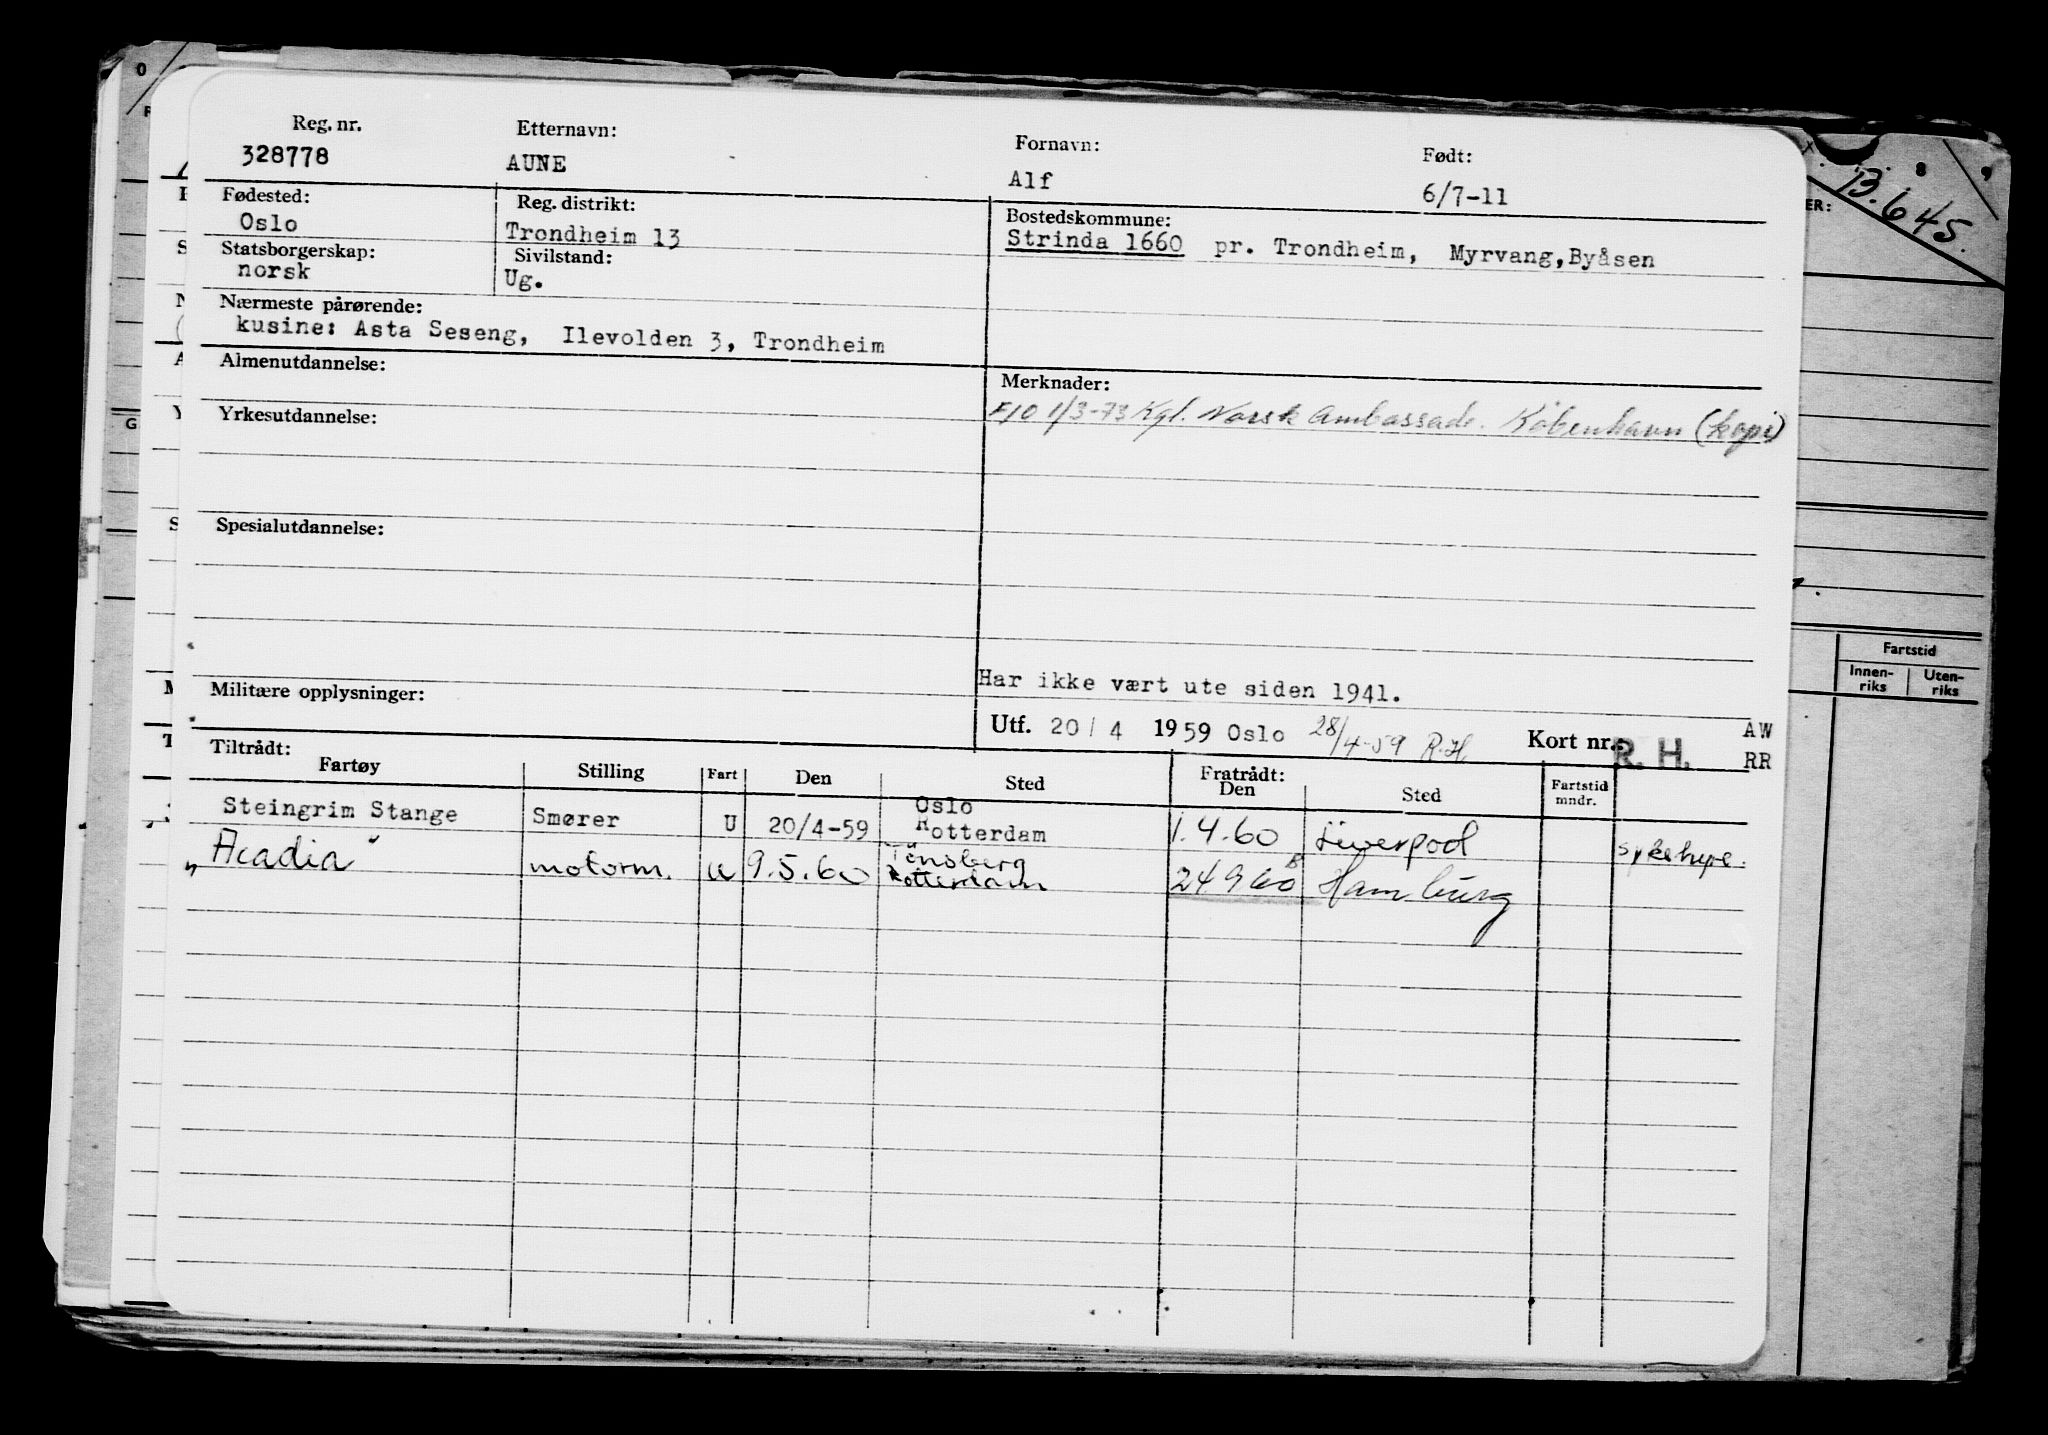 Reg. nr. Etternavn: Fornavn: Født:
328778 AUNE Alf 6/7-11
Fødested: Reg. distrikt: Bostedskommune:
Oslo Trondheim 13 Strinda 1660 pr. Trondheim, Myrvang, Byåsen
Statsborgerskap: Sivilstand:
norsk Ug.
Nærmeste pårørende:
kusine: Asta Seseng, Ilevolden 3, Trondheim
Almenutdannelse: Merknader:
Yrkesutdannelse: F10 1/3-73 Kgl. Norsk Ambassade. København (kopi)
Spesialutdannelse:
Har ikke vært ute siden 1941.
Militære opplysninger:
Utf. 20/4 1959 Oslo 28/4-59 R.H Kort nr. R. H. AW
RR
Tiltrådt: Fratrådt:
Fartøy Stilling Fart Den Sted Den Sted Fartstid mndr.
Steingrim Stange Smører U 20/4-59 Oslo Rotterdam 1.4.60 Liverpool
"Acadia" motorm. u 9.5.60 Tønsberg Rotterdam 24 9 60 Hamburg
B.645.
8 9
ER:
Fartstid
Innen-riks Uten-riks